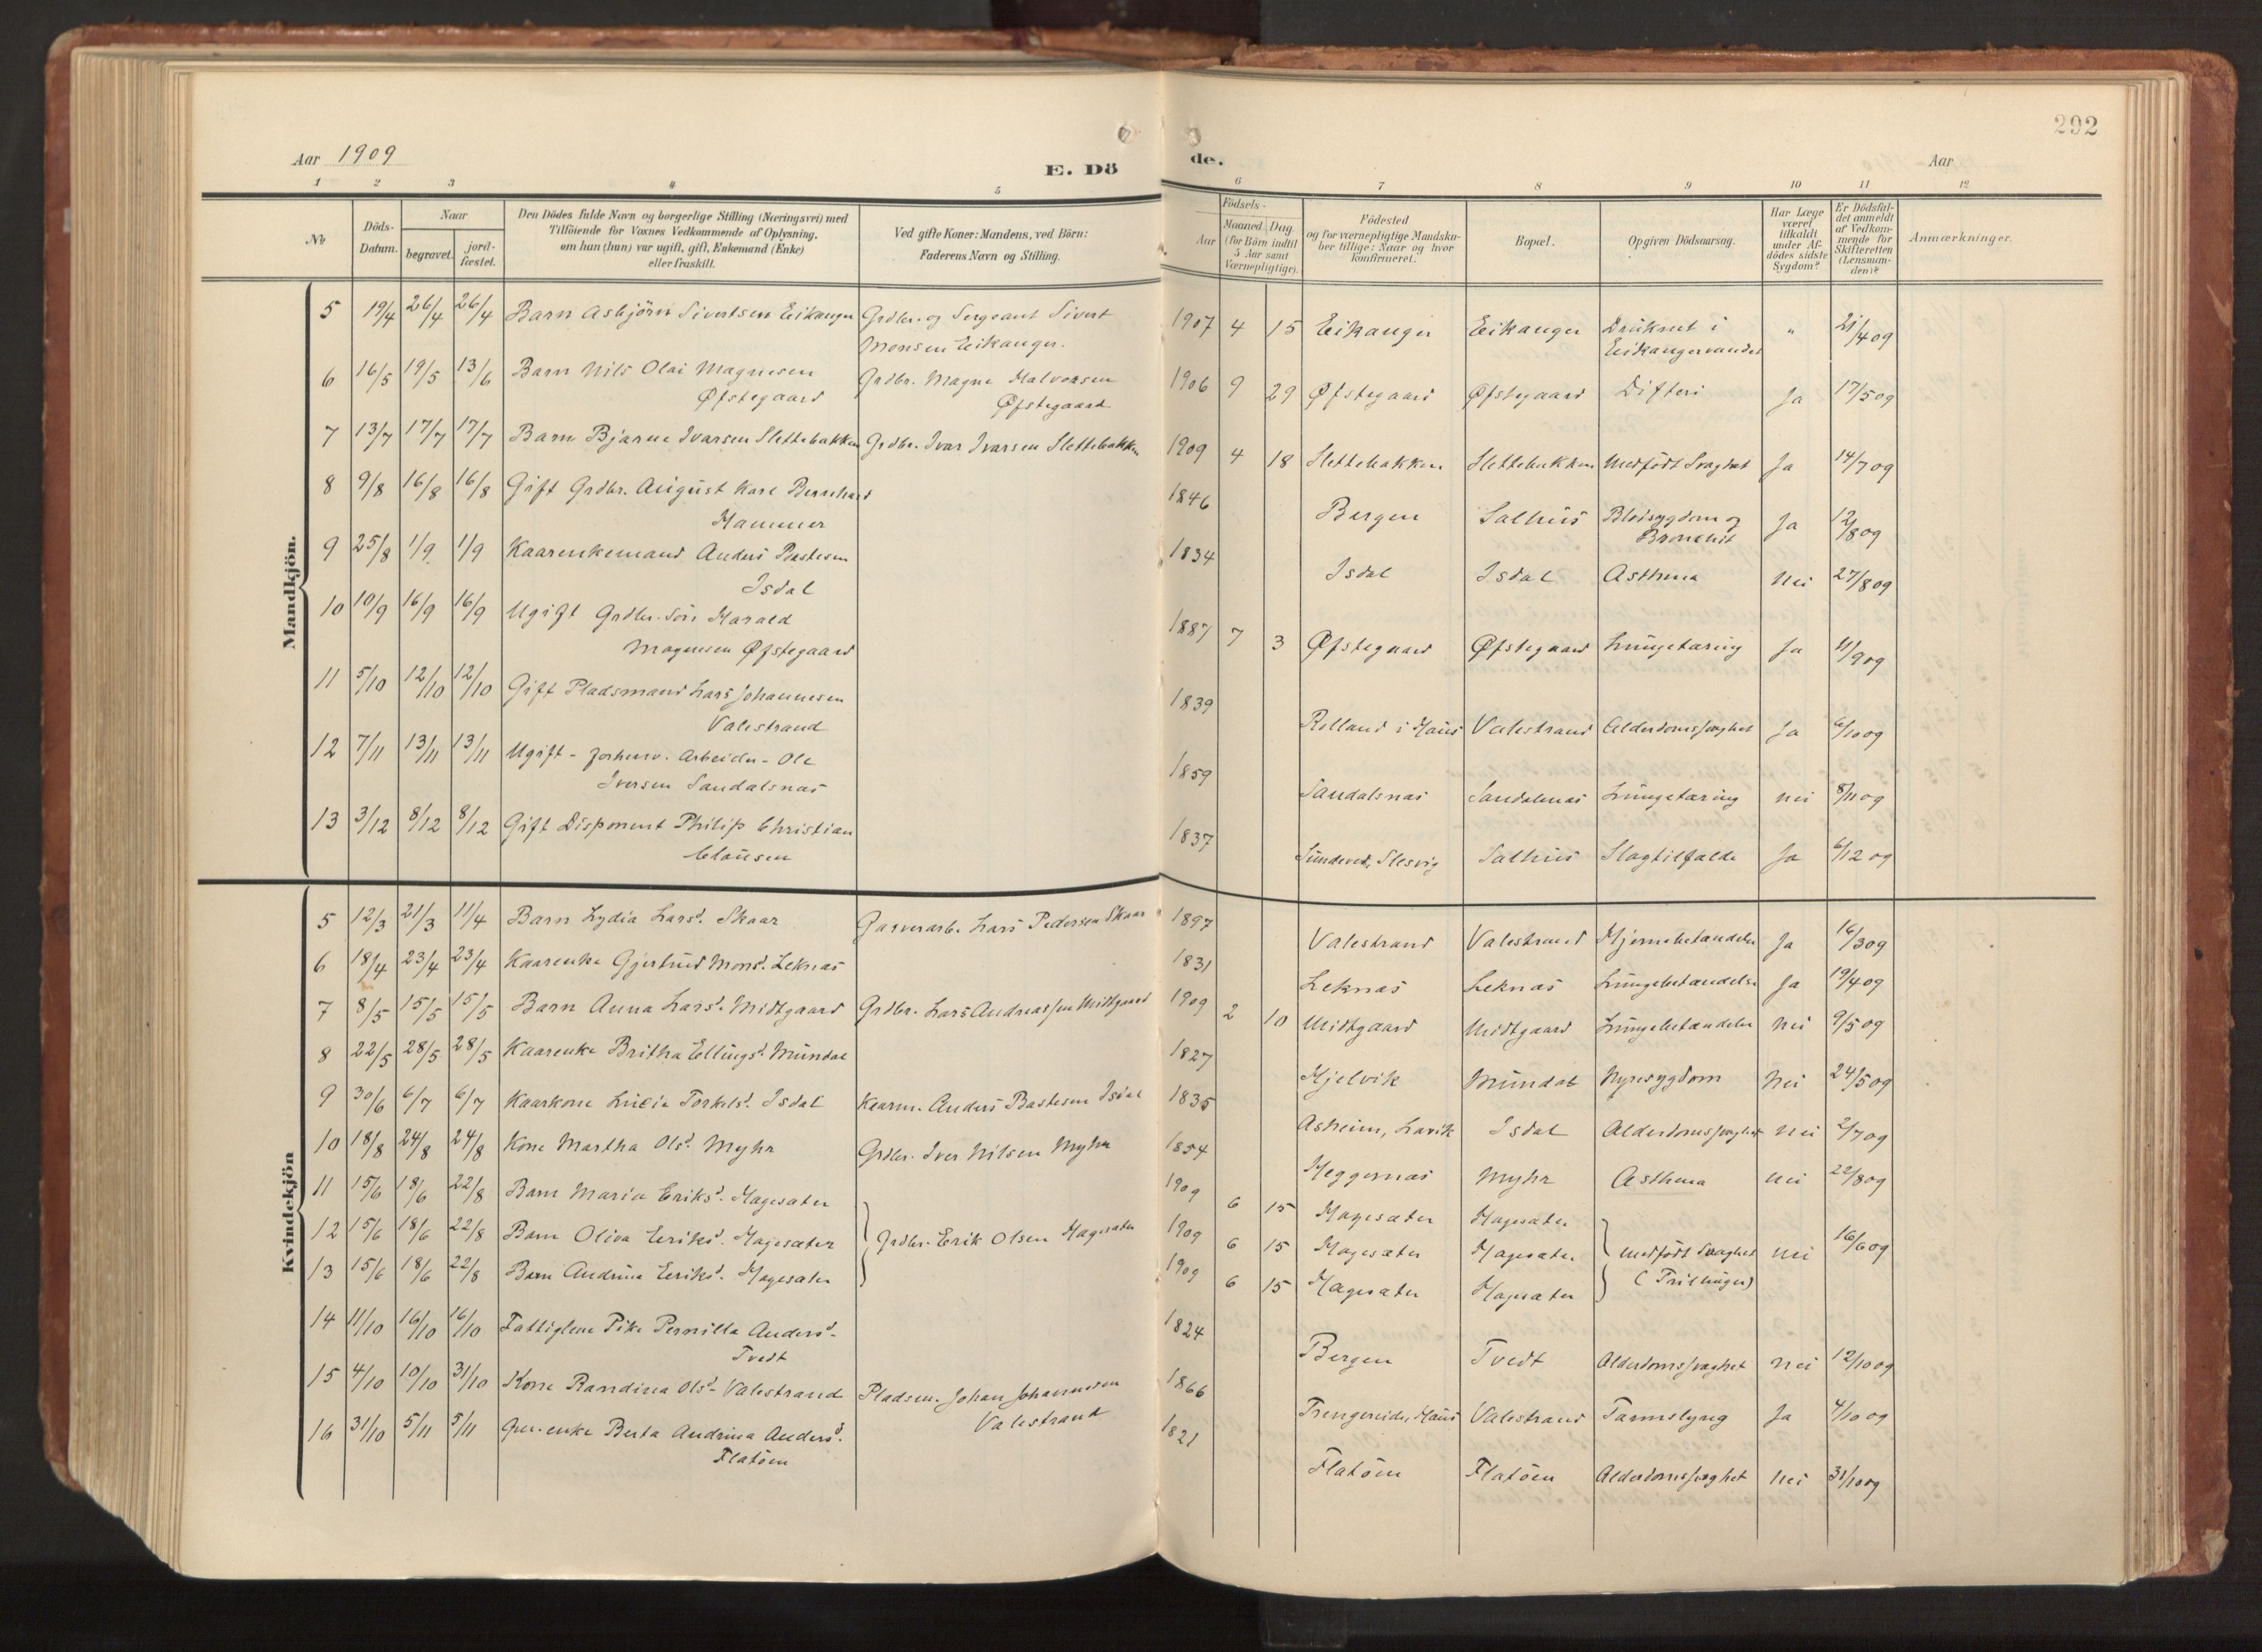 292
Aar 1909
E. Dö
de.
Aar
1 2 3 4 5 6 7 8 9 10 11 12
No
Döds-Datum.
Naar
begravet.
jord-fæstet.
Den Dödes fulde Navn og borgerlige Stilling (Næringsvei) med
Tilföiende for Voxnes Vedkommende af Oplysning,
om han (hun) var ugift, gift, Enkemand (Enke)
eller fraskilt.
Ved gifte Koner: Mandens, ved Börn:
Faderens Navn og Stilling.
Födsels-
Aar
Maaned
Dag
(for Börn indtil
5 Aar samt
Værnepligtige).
Födested
og for værnepligtige Mandska-
ber tillige: Naar og hvor
konfirmeret.
Bopæl.
Opgiven Dödsaarsag.
Har Læge
været
tilkaldt
under Af-
dödes sidste
Sygdom?
Er Dödsfal-
det anmeldt
af Vedkom-
mende for
Skifteretten
(Lensman-
den)?
Anmærkninger.
Mandkjön.
5 19/4 26/4 26/4 Barn Asbjörn Sivertsen Eikanger Grdbr. og Sergeant Sivert 1907 4 15 Eikanger Eikanger Druknet i " 21/4 09
Monsen Eikanger. Eikangervandet
6 16/5 19/5 13/6 Barn Nils Olai Magnesen Grdbr. Magne Halvorsen 1906 9 29 Øfstegaard Øfstegaard Difteri Ja 17/5 09
Øfstegaard Øfstegaard
7 13/7 17/7 17/7 Barn Bjarne Ivarsen Slettebakken Grdbr. Ivar Ivarsen Slettebakken 1909 4 18 Slettebakken Slettebakken Medfödt Svaghet Ja 14/7 09
8 9/8 16/8 16/8 Gift Grdbr. August Karl Bernhard 1846 Bergen Salhus Blodsygdom og Ja 12/8 09
Hammer Bronchit
9 25/8 1/9. 1/9 Kaarenkemand Anders Bastesen 1834 Isdal Isdal Asthma Nei 27/8 09
Isdal
10 10/9 16/9 16/9 Ugift Grdbr. Sön Harald 1887 7 3 Øfstegaard Øfstegaard Lungetæring Ja 11/9 09
Magnesen Øfstegaard
11 5/10 12/10 12/10 Gift Pladsmand Lars Johannesen 1839 Rolland i Haus Valestrand Alderdomssvaghet Ja 6/10 09
Valestrand
12 7/11 13/11 13/11 Ugift - forhenv. Arbeider - Ole 1859 Sandalsnæs Sandalsnæs Lungetæring Nei 8/11 09
Iversen Sandalsnæs
13 3/12 8/12 8/12 Gift Disponent Philip Christian 1837 Sundeved, Slesvig Salhus Slagtilfælde Ja 6/12 09
Clausen
Kvindekjön
5 12/3 21/3 11/4 Barn Lydia Larsd. Skaar Garverarb. Lars Pedersen Skaar 1897 Valestrand Valestrand Hjernebetændelse Ja 16/3 09
6 18/4 23/4 23/4 Kaarenke Gjertrud Monsd. Leknæs 1831 Leknæs Leknæs Lungebetændelse Ja 19/4 09
7 8/5 15/5 15/5 Barn Anna Larsd. Midtgaard Grdbr. Lars Andreassen Midtgaard 1909 2 10 Midtgaard Midtgaard Lungebetændelse Nei 9/5 09
8 22/5 28/5 28/5 Kaarenke Britha Ellingsd. Mundal 1827 Hjelvik Mundal Nyresygdom Nei 24/5 09
9 30/6 6/7 6/7 Kaarkone Lucia Torkelsd. Isdal Kaarm. Anders Bastesen Isdal 1835 Asheim, Lavik Isdal Alderdomssvaghet Nei 2/7 09
10 18/8 24/8 24/8 Kone Martha Olsd. Myhr Grdbr. Iver Nilsen Myhr 1854 Heggernæs Myhr Asthma Nei 22/8 09
11 15/6 18/6 22/8 Barn Maria Eriksd. Hagesæter 1909 6 15 Hagesæter Hagesæter
12 15/6 18/6 22/8 Barn Oliva Eriksd. Hagesæter Grdbr. Erik Olsen Hagesæter 1909 6 15 Hagesæter Hagesæter Medfödt Svaghet Nei 16/6 09
13 15/6 18/6 22/8 Barn Andrina Eriksd. Hagesæter 1909 6 15 Hagesæter Hagesæter (Trillinger)
14 11/10 16/10 16/10 Fattiglem Pike Pernille Andersd. 1824 Bergen Tvedt Alderdomssvaghet Nei 12/10 09
Tvedt
15 4/10 10/10 31/10 Kone Randina Olsd. Valestrand Pladsm. Johan Johannesen 1866 Trengereide, Haus Valestrand Tarmslyng Ja 4/10 09
Valestrand
16 31/10 5/11 5/11 enke Berta Andrina Andersd. 1821 Flatöen Flatöen Alderdomssvaghet Nei 31/10 09
Flatöen